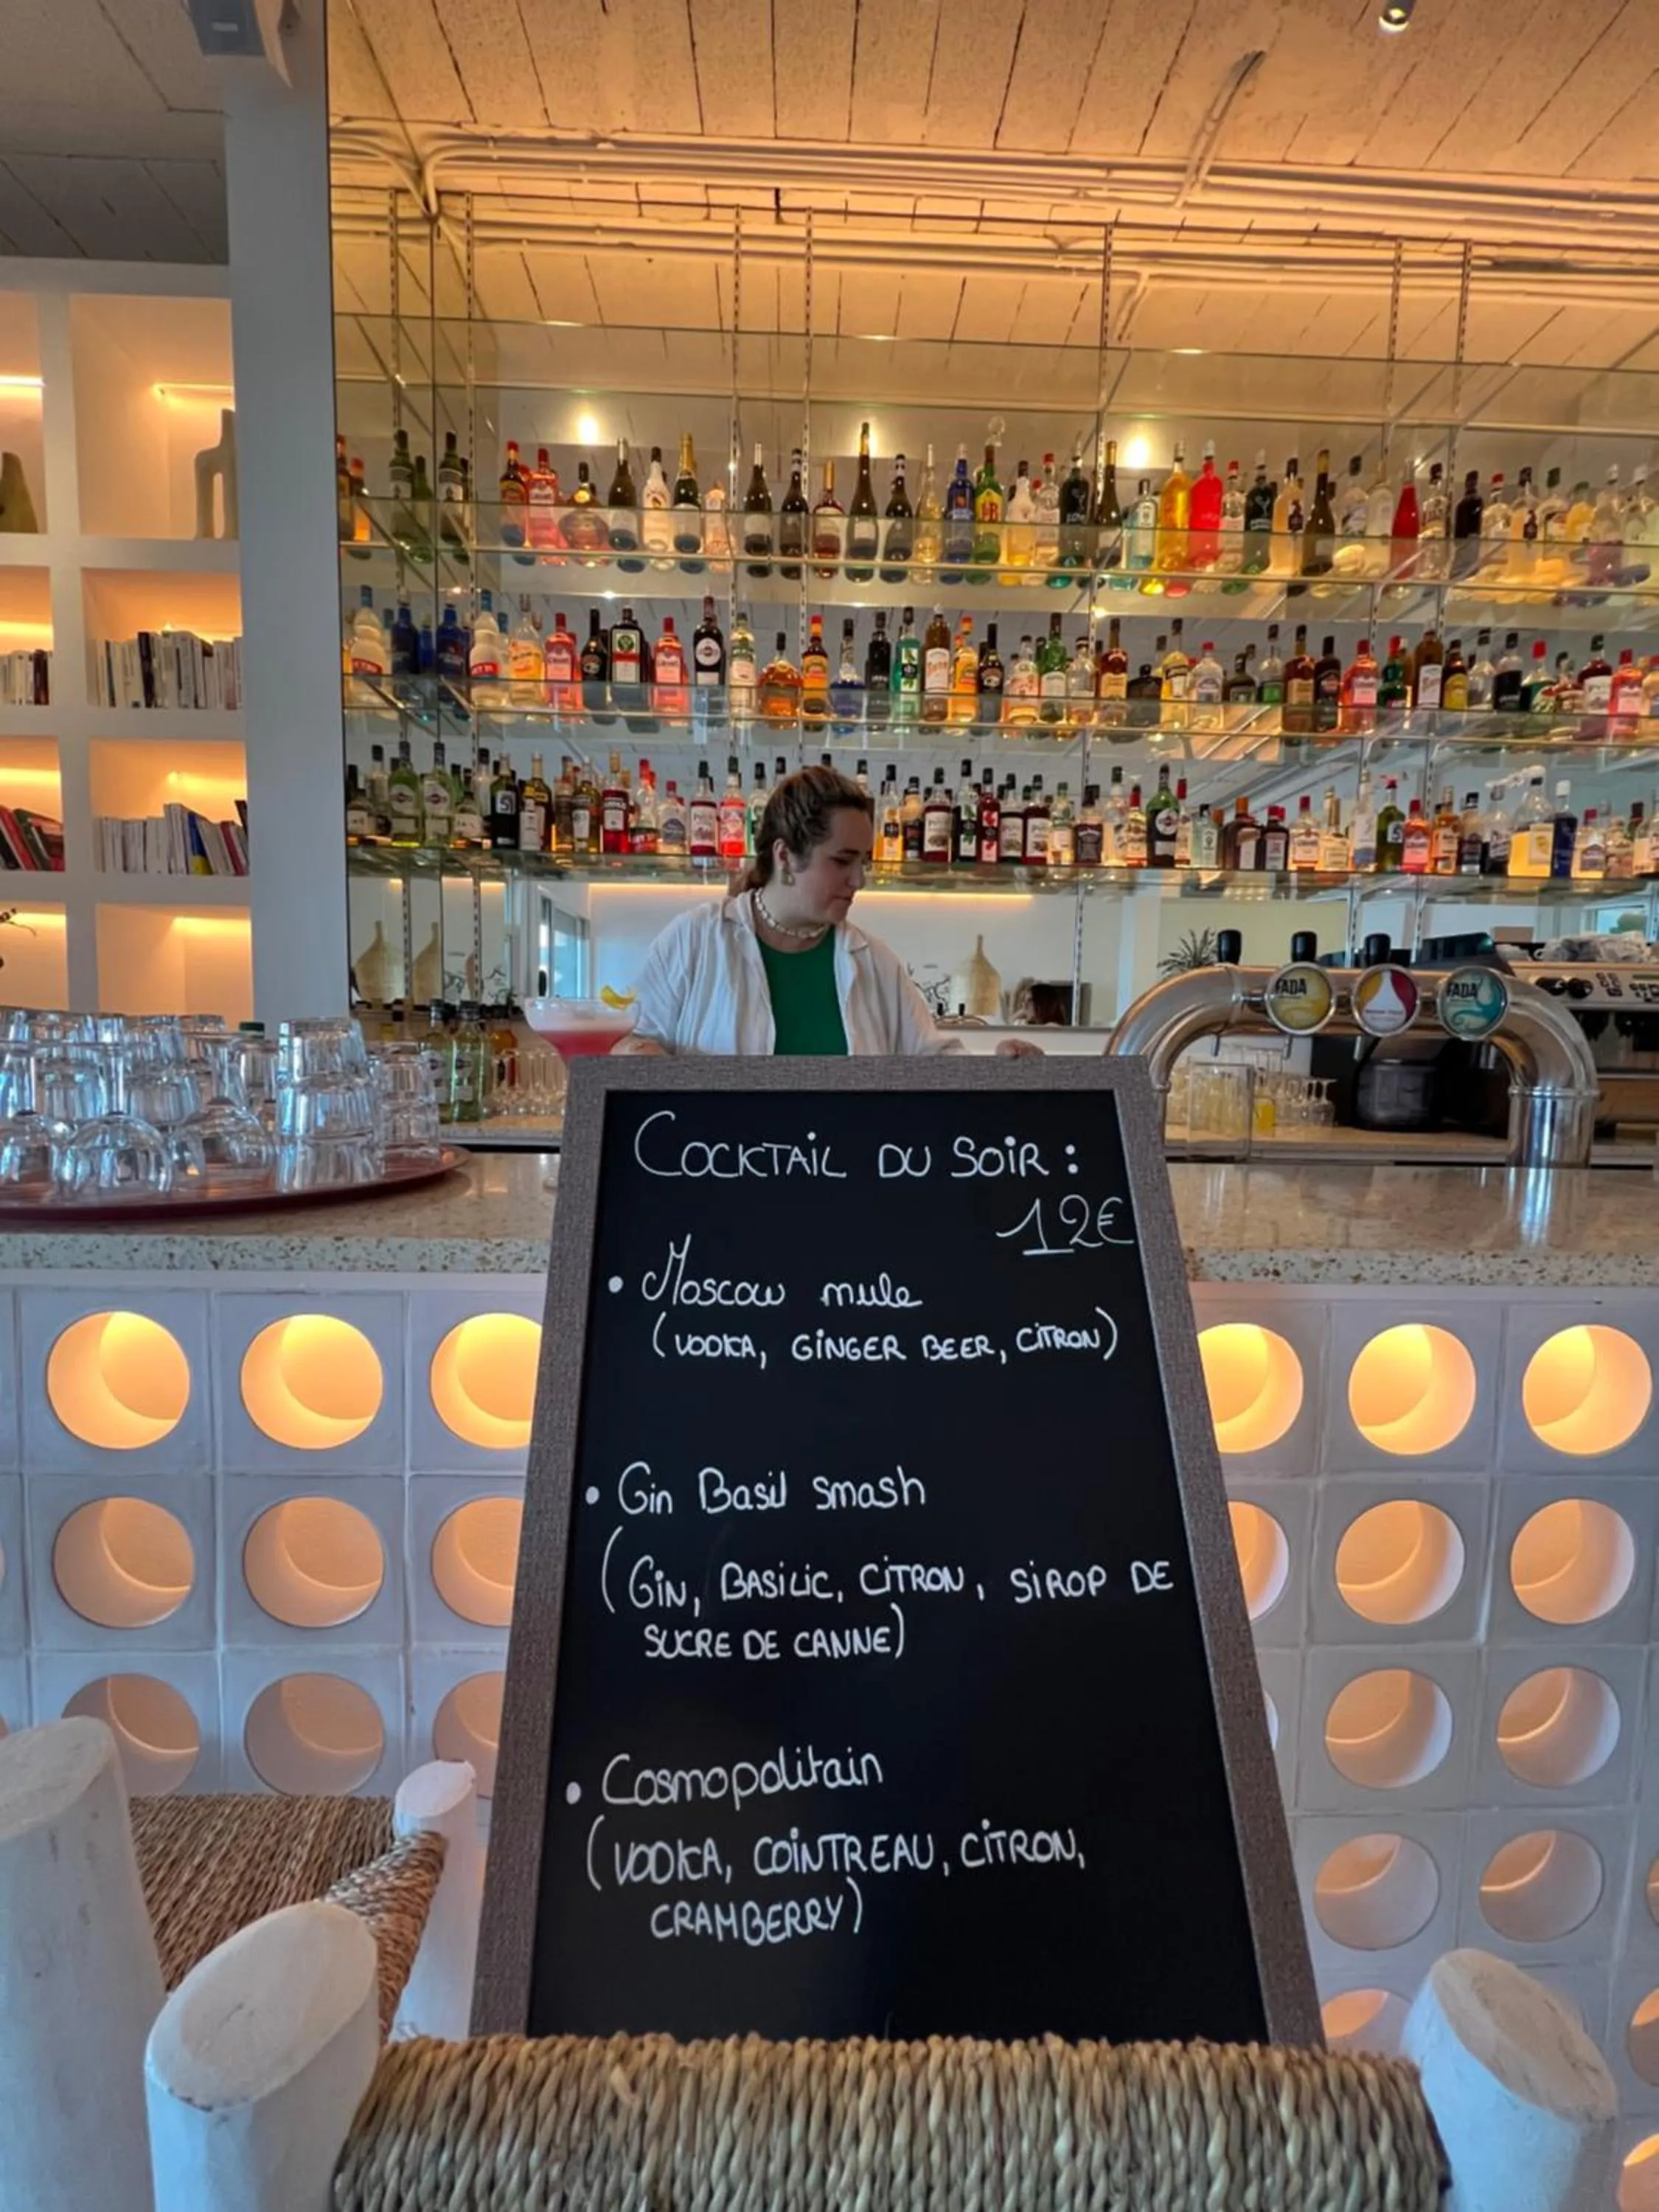 FADA
FADA
COCKTAIL DU SOIR :
12€
• Moscow mule
(VODKA, GINGER BEER, CITRON)
• Gin Basil smash
(GIN, BASILIC, CITRON, SIROP DE
SUCRE DE CANNE)
• Cosmopolitain
(VODKA, COINTREAU, CITRON,
CRAMBERRY)